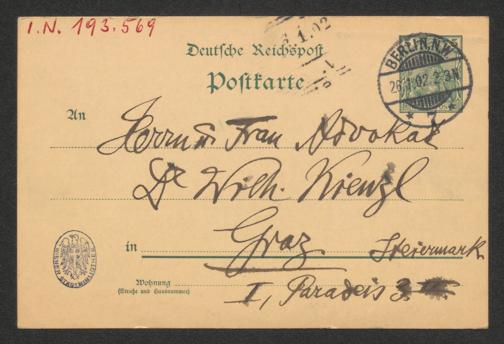 I.N. 193.569
1.02
Deutsche Reichspost
Postkarte
BERLIN, N.W.
26.1.02. 2-3N
* 7 *
An
Herrn u Frau Advokat
Dr Wilh. Kienzl
in Graz Steiermark
WIENER STADTBIBLIOTHEK
Wohnung
(Straße und Hausnummer)
I, Paradeis 3.